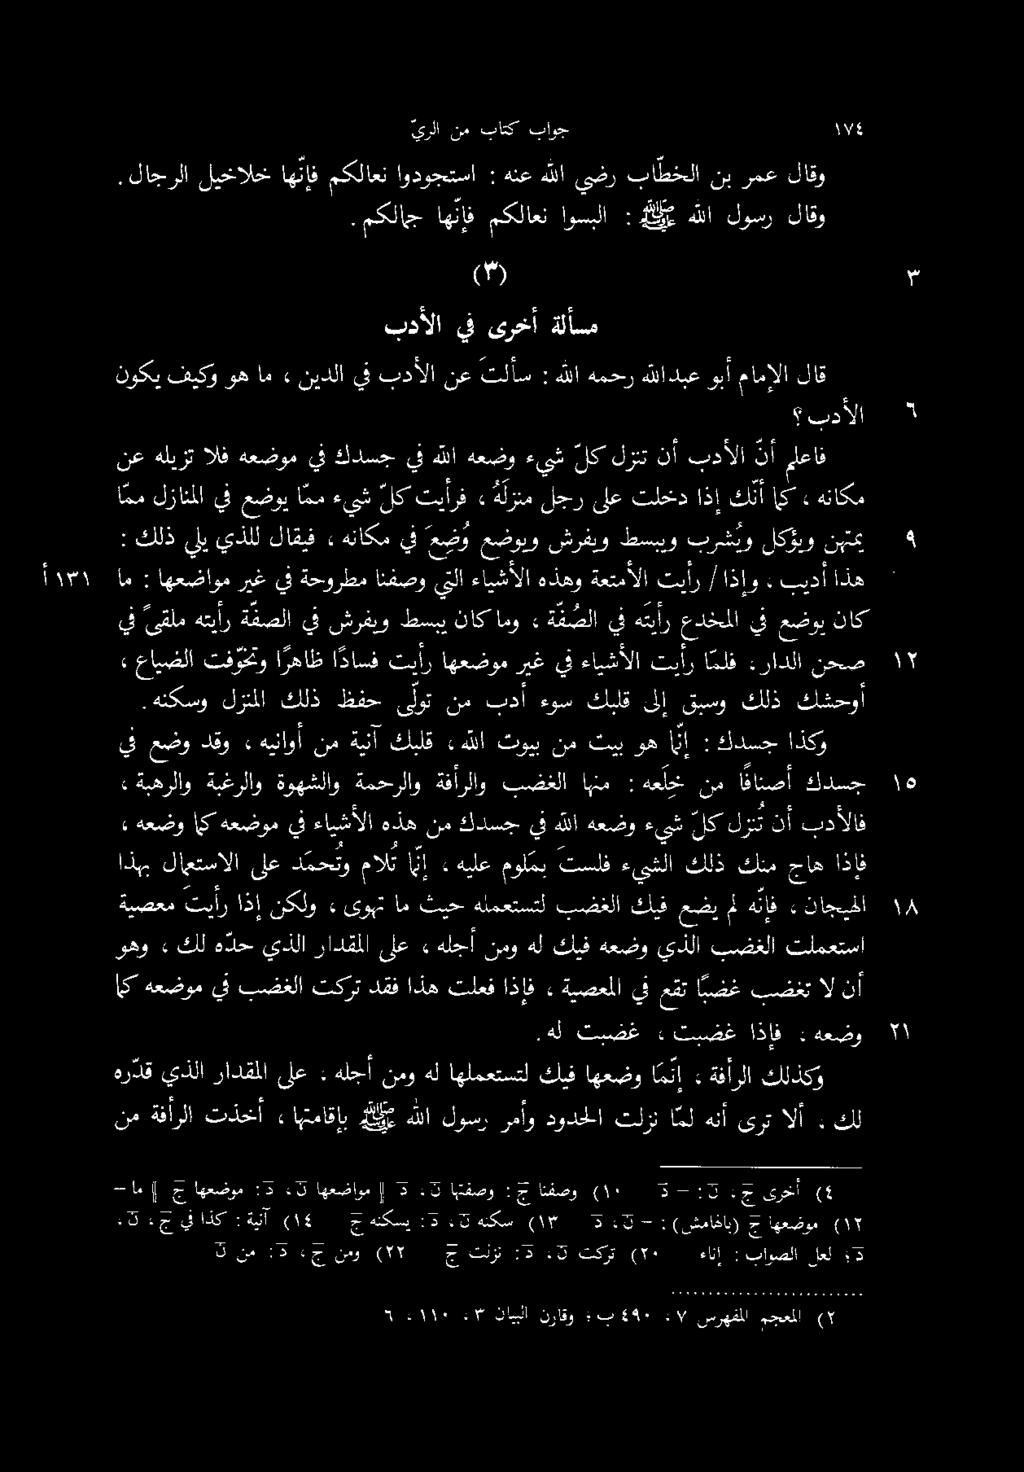 ١٧٤ جواب كتاب من الريّ
وقال عمر بن الخطّاب رضي الله عنه : استجودوا نعالكم فإنّها خلاخيل الرجال.
وقال رسول الله ﷺ : البسوا نعالكم فإنّها جمالكم.
٣ (٣)
مسألة أخرى في الأدب
قال الإمام أبو عبدالله رحمه الله : سألتَ عن الأدب في الدين ، ما هو وكيف يكون
٦ الأدب ؟
فاعلم أنّ الأدب أن تنزل كلّ شيء وضعه الله في جسدك في موضعه فلا تزيله عن
مكانه ، كما أنّك إذا دخلت على رجل منزلَهُ ، فرأيت كلّ شيء ممّا يوضع في المنازل ممّا
٩ يمتهن ويؤكل ويُشرب ويبسط ويفرش ويوضع وُضِعَ في مكانه ، فيقال للذي يلي ذلك :
هذا أديب ، وإذا / رأيت الأمتعة وهذه الأشياء التي وصفنا مطروحة في غير مواضعها : ما ١٣١ أ
كان يوضع في المخدع رأيتَه في الصُفّة ، وما كان يبسط ويفرش في الصفّة رأيته ملقىً في
١٢ صحن الدار ، فلمّا رأيت الأشياء في غير موضعها رأيت فسادًا ظاهرًا وتخوّفت الضياع ،
أوحشك ذلك وسبق إلى قلبك سوء أدب من تولّى حفظ ذلك المنزل وسكنه.
وكذا جسدك : إنّما هو بيت من بيوت الله ، قلبك آنية من أوانيه ، وقد وضع في
١٥ جسدك أصنافًا من خِلَعه : منها الغضب والرأفة والرحمة والشهوة والرغبة والرهبة ،
فالأدب أن تُنزل كلّ شيء وضعه الله في جسدك من هذه الأشياء في موضعه كما وضعه ،
فإذا هاج منك ذلك الشيء فلستَ بمَلوم عليه ، إنّما تُلام وتُحمَد على الاستعمال بهذا
١٨ الهيجان ، فإنّه لم يضع فيك الغضب لتستعمله حيث ما تهوى ، ولكن إذا رأيتَ معصية
استعملت الغضب الذي وضعه فيك له ومن أجله ، على المقدار الذي حدّه لك ، وهو
أن لا تغضب غضبًا تقع في المعصية ، فإذا فعلت هذا فقد تركت الغضب في موضعه كما
٢١ وضعه ، فإذا غضبت ، غضبت له.
وكذلك الرأفة ، إنّما وضعها فيك لتستعملها له ومن أجله ، على المقدار الذي قدّره
لك ، ألا ترى أنه لمّا نزلت الحدود وأمر رسول الله ﷺ بإقامتها ، أخذت الرأفة من
٤) أخرى ج ، ن : – د ١٠) وصفنا ج : وصفتها ن ، د ‖ مواضعها ن ، د: موضعها ج ‖ ما –
١٢) موضعها ج (بالهامش) : – ن ، د ١٣) سكنه ن ، د: يسكنه ج ١٤) آنية : كذا في ج ، ن ،
د؛ لعل الصواب : إناء ٢٠) تركت ن ، د: نزلت ج ٢٢) ومن ج ، د: من ن
٢) المعجم المفهرس ٧ ، ٤٩٠ ب ؛ وقارن البيان ٣ ، ١١٠ ، ٦